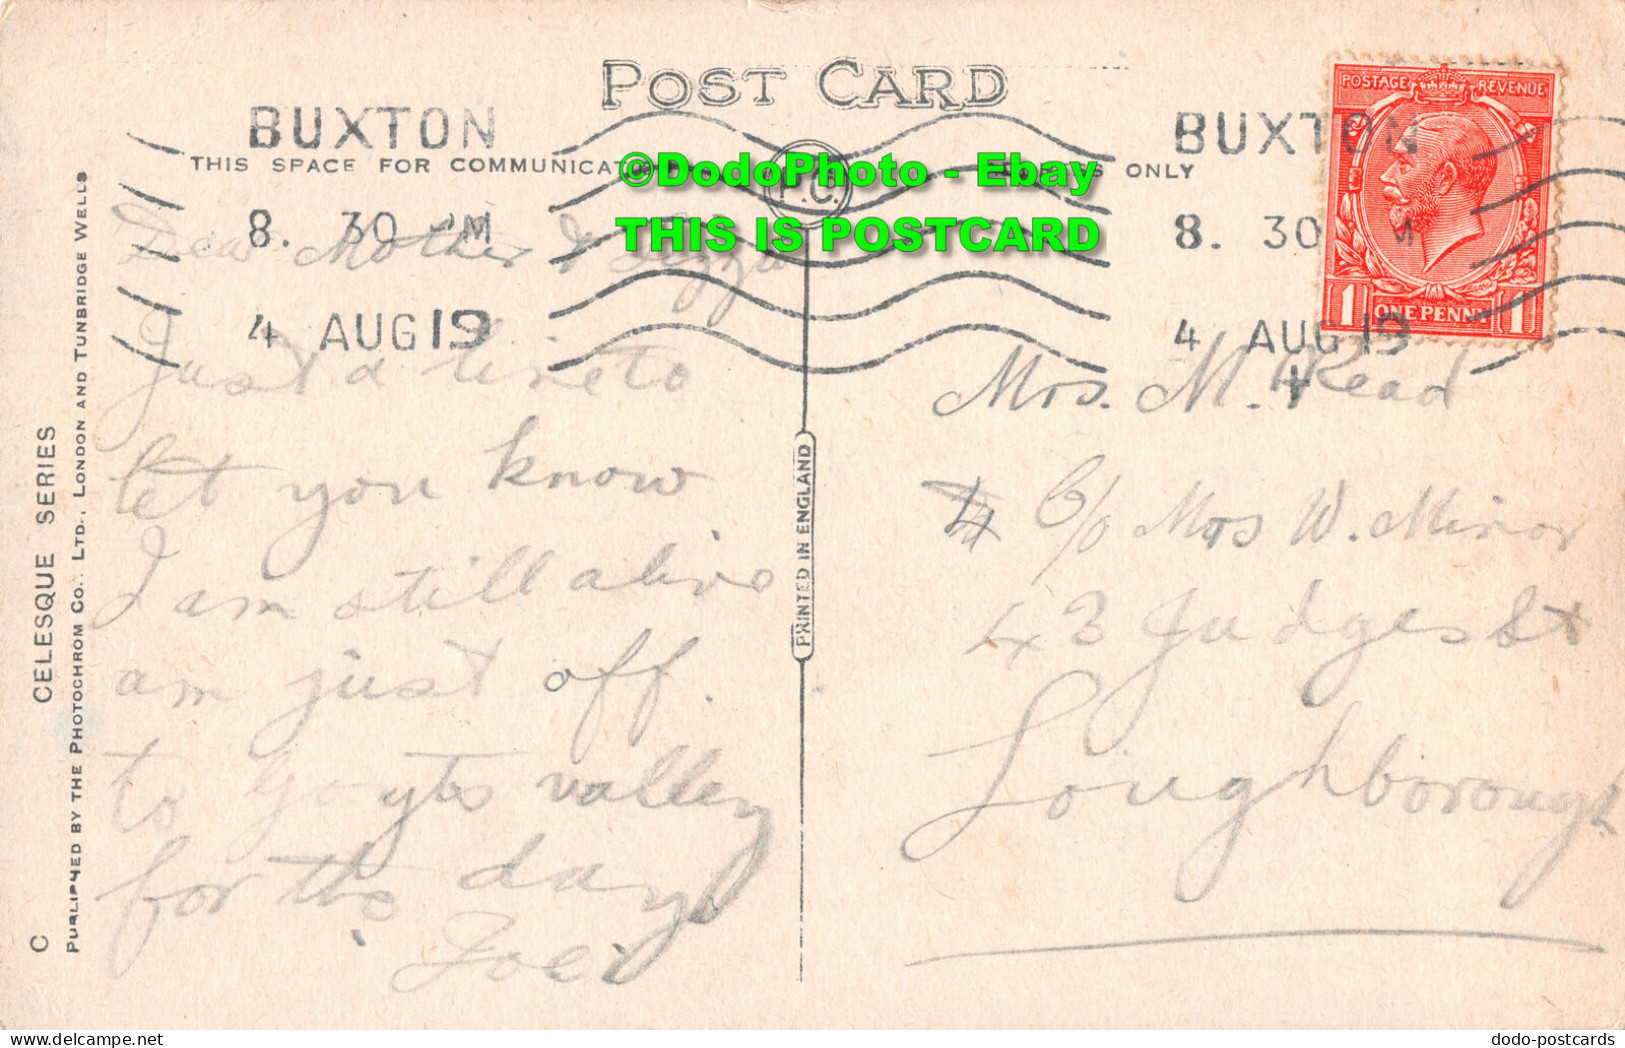 POST CARD
BUXTON
BUXTON
POSTAGE REVENUE
THIS SPACE FOR COMMUNICATION
ONLY
©DodoPhoto - Ebay
THIS IS POSTCARD
P.C.
8. 30 M
8. 30 M
4 AUG 19
4 AUG 19
1 ONE PENNY 1
Dear Mother &
Just a line to
let you know
I am still alive
am just off
to Goyts valley
for the day
Mrs. M. Read
C/o Mrs W. Minor
43 Judges St
Loughborough
PRINTED IN ENGLAND
C CELESQUE SERIES
PUBLISHED BY THE PHOTOCHROM CO., LTD., LONDON AND TUNBRIDGE WELLS
dodo-postcards